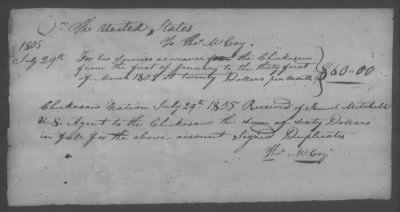 The United States
To Thos. McCoy.
1805
July 29th For his services as weaver for the Chickasaws
from the first of January to the thirty first
of March 1805 at twenty Dollars per month $60.00
Chickasaw Nation July 29th 1805 Received of Saml Mitchell
U S Agent to the Chickasaws the sum of sixty Dollars
in full for the above account Signed Duplicates
Thos McCoy